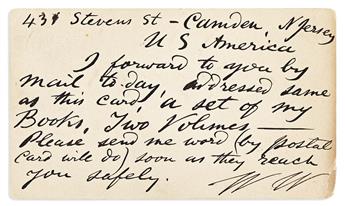 431 Stevens St - Camden, N Jersey
U S America
I forward to you by
mail to-day, addressed same
as this card, a set of my
Books, Two Volumes, —
Please send me word (by postal
card will do) soon as they reach
you safely.   W W